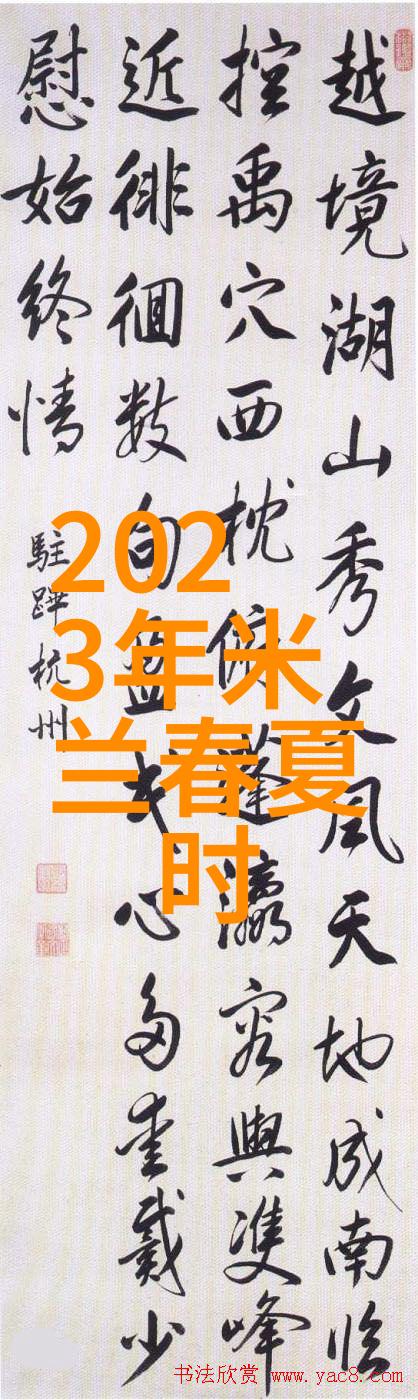 越境湖山秀文風天地成南臨
控禹穴西枕俯蓬瀛容與雙峰
近徘徊数句盈我心多愛戴少
慰始終情
駐蹕杭州
202
3年米
兰春夏
时
书法欣赏 www.yac8.com